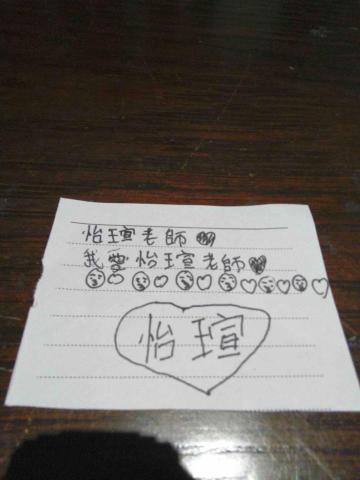 怡瑄老師
我愛怡瑄老師
怡瑄